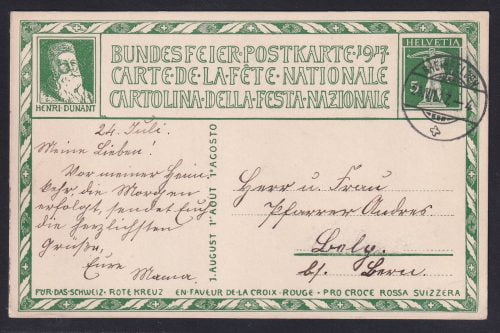 BUNDESFEIER·POSTKARTE·1917
CARTE·DE·LA·FÊTE·NATIONALE
CARTOLINA·DELLA·FESTA·NAZIONALE
HENRI·DUNANT
HELVETIA
24. Juli.
Meine Lieben!
Vor meiner Heim-
kehr, die Morgen
erfolgt, sendet Euch
die herzlichsten
Grüße,
Eure
Mama
1. AUGUST 1ᴱᴿ AOÛT 1º AGOSTO
Herrn u. Frau
Pfarrer Andres
Belp.
b/. Bern.
FÜR·DAS·SCHWEIZ·ROTE KREUZ EN·FAVEUR·DE·LA·CROIX·ROUGE·PRO CROCE ROSSA SVIZZERA